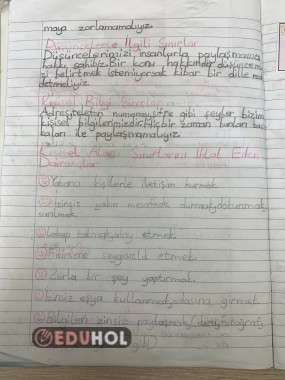 maya zorlamamalıyız.
Düşüncelerle İlgili Sınırlar
Düşüncelerimizi insanlarla paylaşmama
hakkı sahibiz. Bir konu hakkında düşüncemi
zi belirtmek istemiyorsak kibar bir dille red
detmeliyiz.
Kişisel Bilgi Sınırları
Adres, telefon numarası, şifre gibi şeyler bizim
kişisel bilgilerimizdir. Hiçbir zaman bunları baş
kaları ile paylaşmamalıyız.
Kişisel Alan Sınırlarını İhlal Eden
Davranışlar
Yabancı kişilerle iletişim kurmak
yakın mesafede durmak, dokunmak,
sarılmak.
Lakap takmak, alay etmek.
Fikirlere saygısızlık etmek.
Zorla bir şey yaptırmak.
İzinsiz eşya kullanmak, odasına girmek.
Bilgileri izinsiz paylaşmak
gibi)
EDUHOL